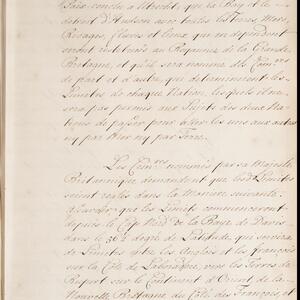 Paix conclu a Utrecht que la Baye et le
detroit d'Hudson avec toutes les Terres, Mers,
Rivages, fleuves et lieux qui en dependent
seront restitués au Royaume de la Grande
Bretagne, et qu'il sera nommé des Com.res
de part et d'autre, qui determineront les
Limites de chaque Nation, lesquels il ne
sera pas permis aux Sujets des deux Na-
tions de passer pour aller les uns aux autres
ny par Mer ny par Terre.
Les Com.res nommés par sa Majesté
Britannique demandent que les Limites
soient reglés dans la Maniere suivante.
Sçavoir que les Limites commenceront
depuis le Cap Nord de la Baye de Davis
dans le 56½ degré de Latitude qui servira
de Limites entre les Anglois et les françois
sur la Côte de Labrador, vers les Terres de
Rupert sur le Continent d'Orient de la
Nouvelle Bretagne du Côté des François et